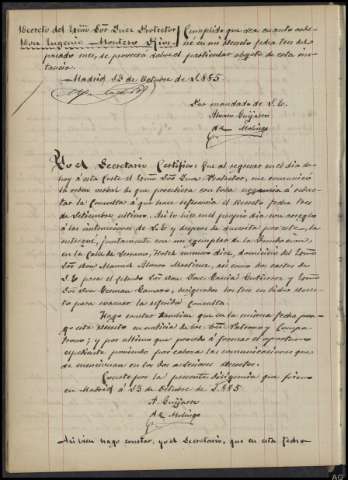 Decreto del Exmo Sor Juez Protector
Don Eugenio Montero Rios
Cumplido que sea cuanto orde-
né en mi decreto fecha tres del
pasado mes, se proveerá sobre el particular objeto de esta ins-
tancia.
Madrid 13 de Octubre de 1.885
Por mandado de S. E.
Alvaro Guijarro
de Molinga
Yo el Secretario Certifico: Que al regresar en el dia de
hoy á esta Corte el Exmo Sor Juez Protector, me comunicó
la orden verbal de que procediera con toda urgencia á
la Consulta á que hace referencia el decreto fecha tres
de Setiembre ultimo. Asi lo hice en el propio dia con arreglo
á las instrucciones de S. E. y despues de suscrita por este, la
entregué, juntamente con un ejemplar de la Fundacion,
en la Calle de Serrano, Hotel numero diez, domicilio del Exmo
Sor Don Manuel Alonso Martinez, asi como dos cartas de
S. E. para el citado Sor Don Garcia Gutierrez y Exmo
Sor Don German Gamazo, designados los tres en dicho decre-
to para evacuar la referida Consulta.
Hago constar tambien que en la misma fecha pon-
go este decreto en noticia de los Sres Patrono y Compa-
trono; y por ultimo que procedo á formar el oportuno
espediente poniendo por cabeza las comunicaciones que
se mencionan en los anteriores decretos.
Consta por la presente diligencia que firmo
en Madrid á 13 de Octubre de 1.885
A. Guijarro
de Molinga
Asi bien hago constar, yo el Secretario, que en esta fecha